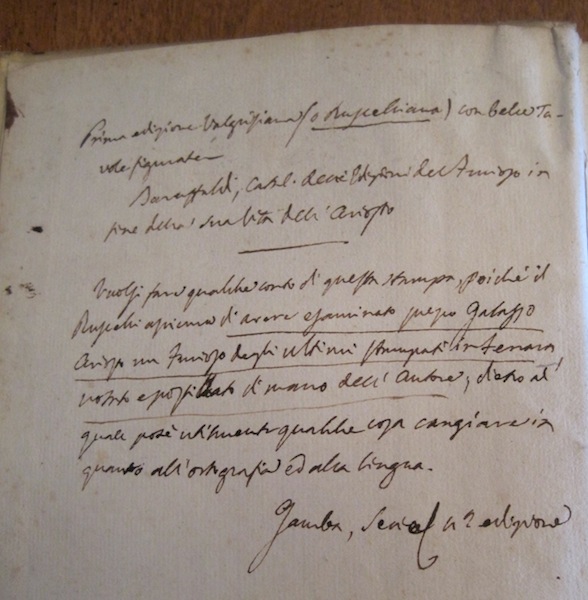 Prima edizione Valgrisiana (o Ruscelliana) con belle Ta-
vole figurate.
Baruffaldi, Catal. delle Edizioni del Furioso in
fine della sua Vita dell'Ariosto
Vuolsi fare qualche conto di questa stampa, poichè il
Ruscelli afferma di avere esaminato presso Galasso
Ariosto un Furioso degli ultimi stampati in Ferrara,
notato e postillato di mano dell'Autore, dietro al
quale potè utilmente qualche cosa cangiare in
quanto all'ortografia ed alla lingua.
Gamba, 2 edizione